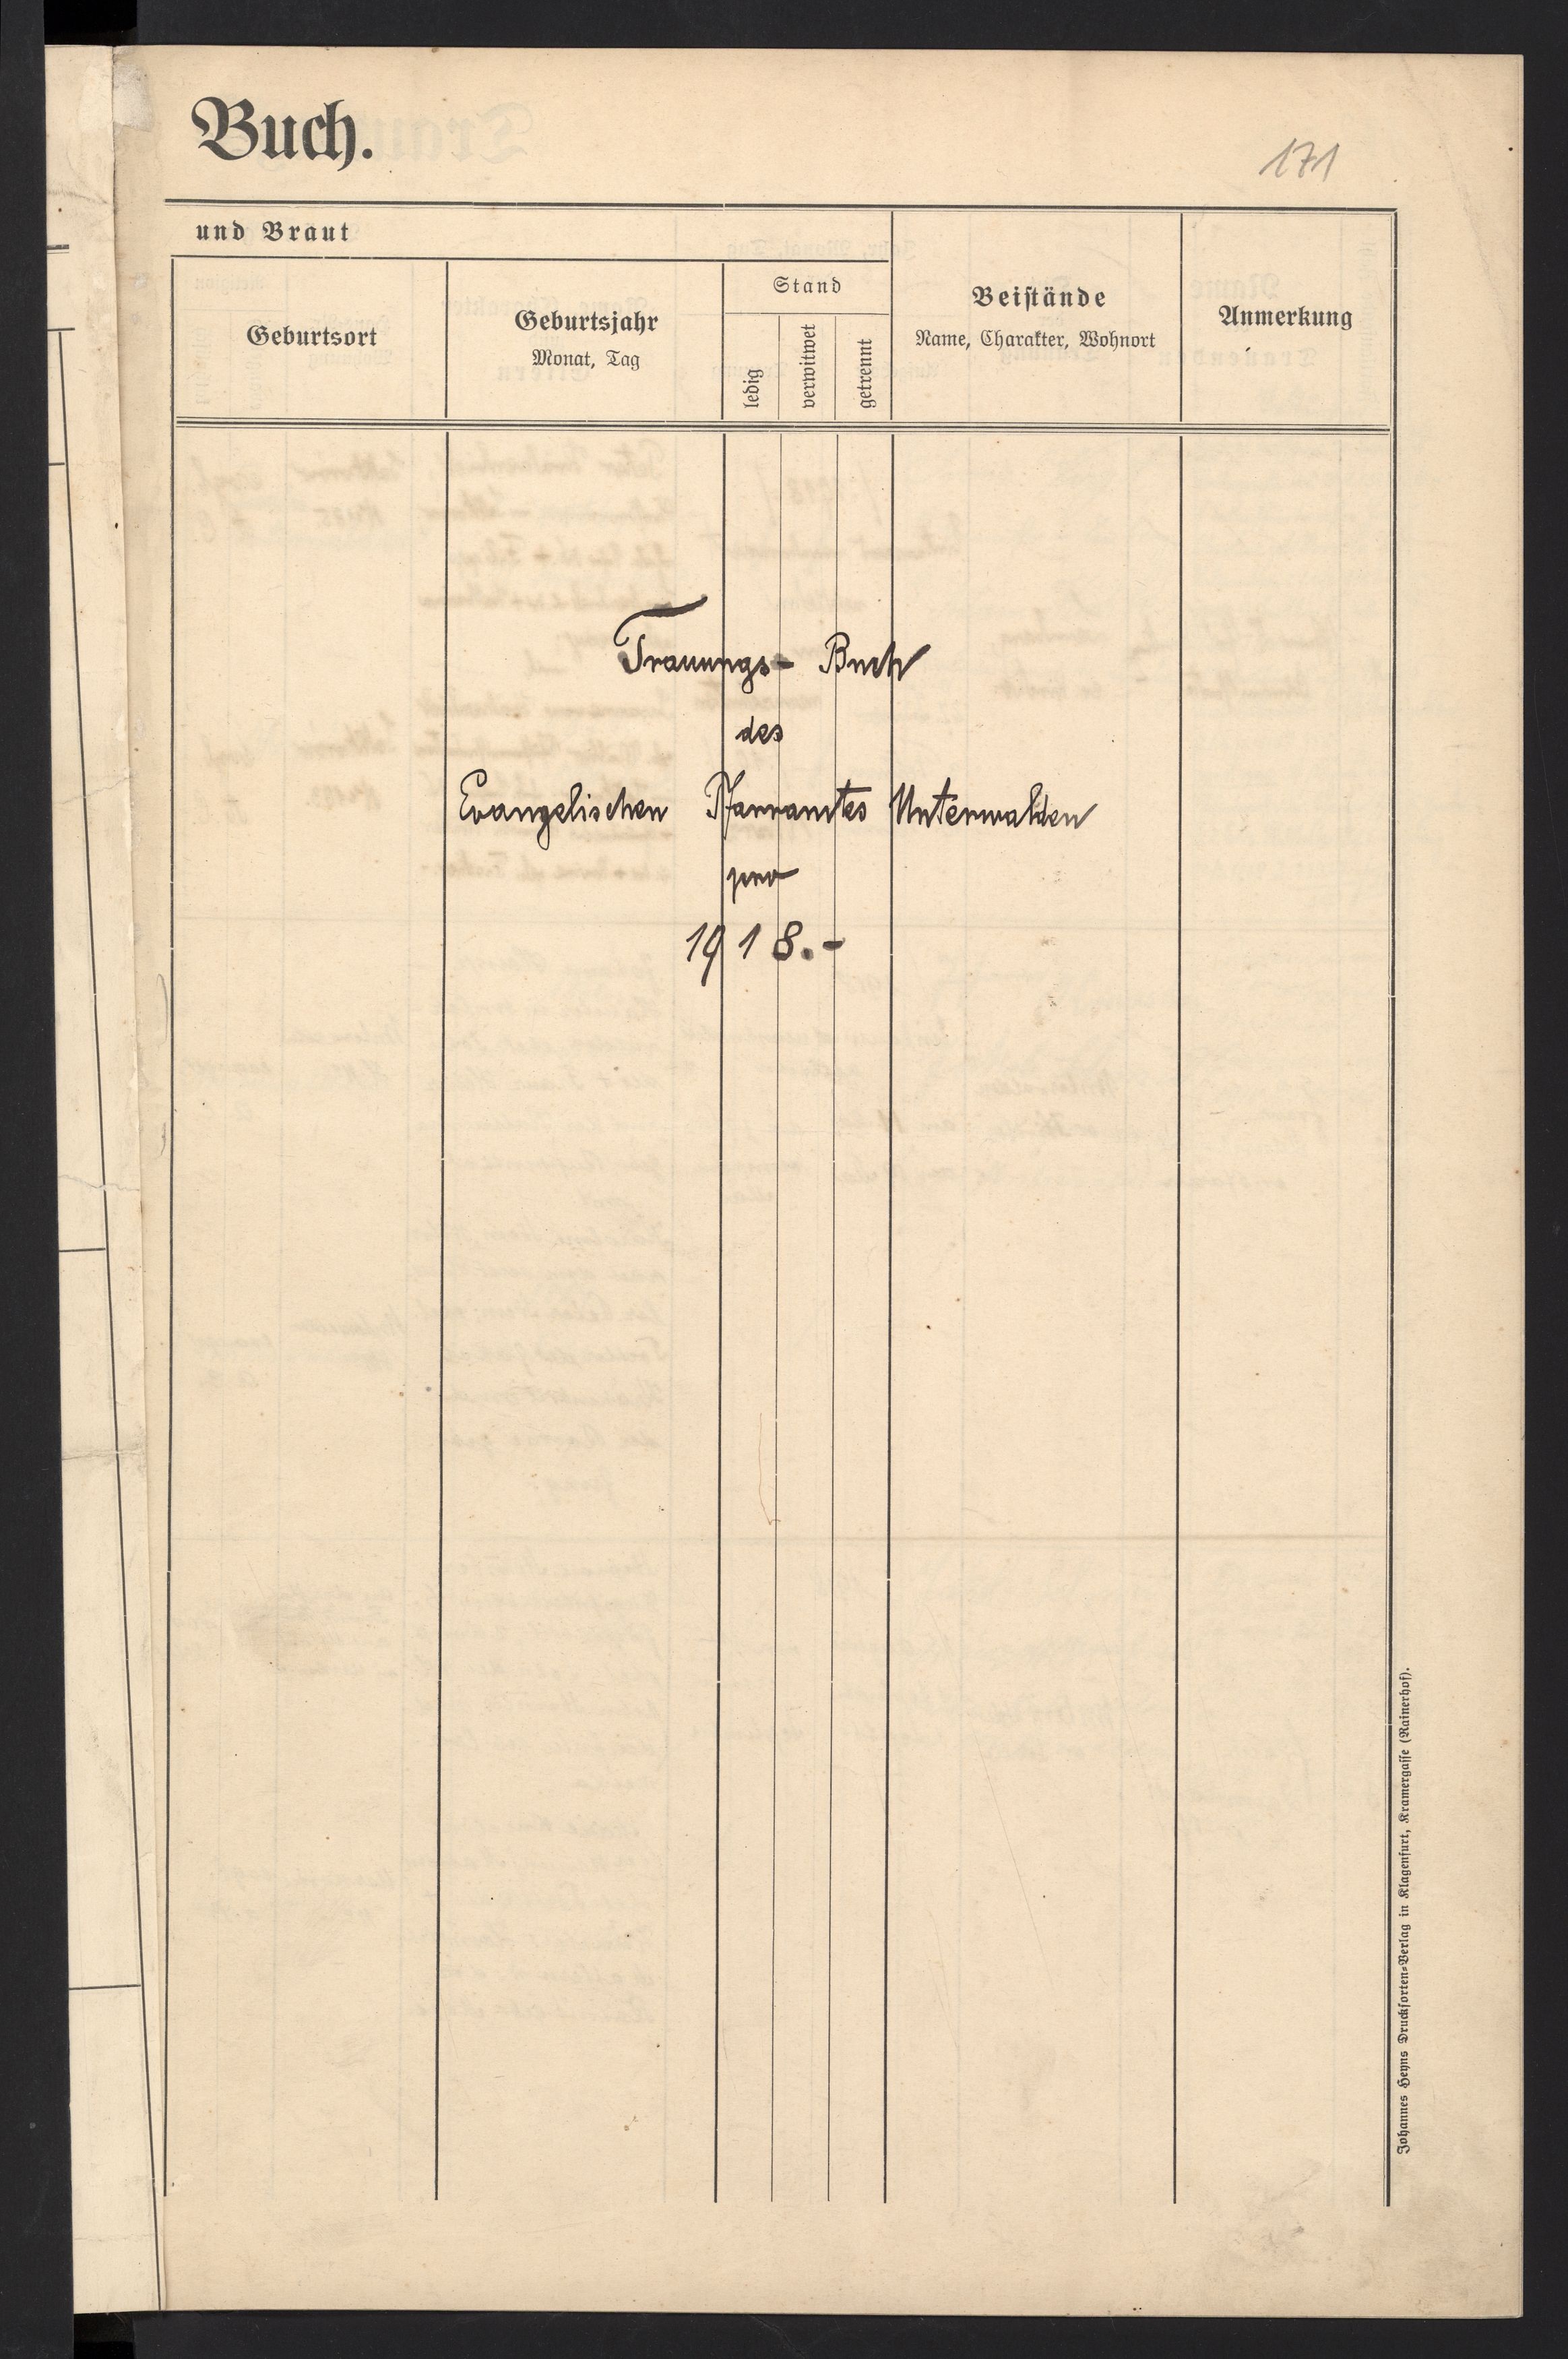 Buch.
171
und Braut
Geburtsort
Geburtsjahr
Monat, Tag
Stand
ledig
verwitwet
getrennt
Beistände
Name, Charakter, Wohnort
Anmerkung
Trauungs- Buch
des
Evangelischen Pfarramtes Unterwalden
pro
1918.-
Johannes Heyns Drucksorten-Verlag in Klagenfurt, Kramergasse (Rainerhof).